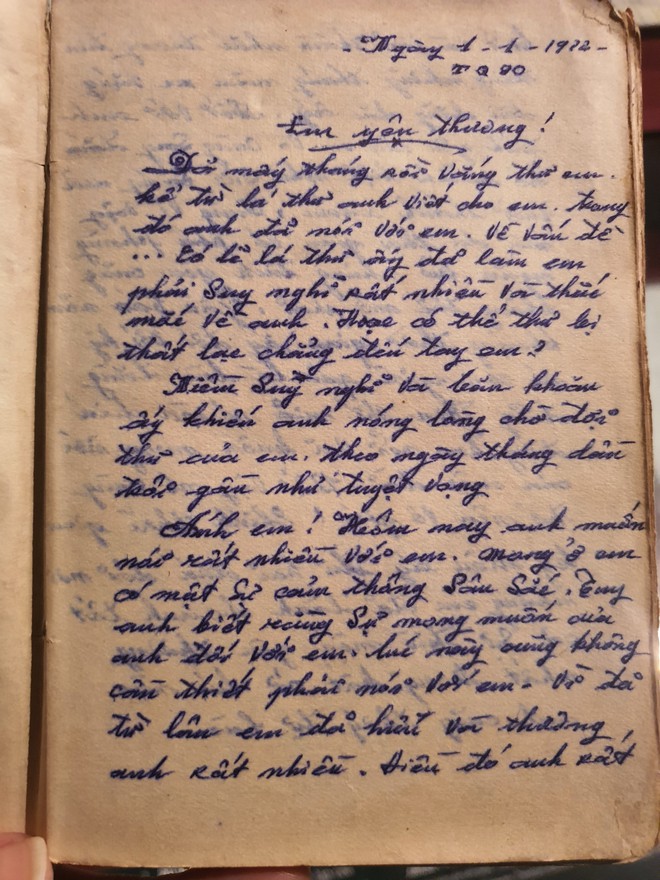 Ngày 1-1-1972-
TQ 90
Em yêu thương!
Đã mấy tháng rồi vắng thư em.
kể từ lá thư anh viết cho em. trong
đó anh đã nói với em. Về vấn đề
... Có lẽ lá thư ấy đã làm em
phải Suy nghĩ rất nhiều và thắc
mắc về anh. Hoặc có thể thư bị
thất lạc chẳng đến tay em?
Niềm Suy nghĩ và băn khoăn
ấy khiến anh nóng lòng chờ đợi
thư của em. theo ngày tháng dần
trôi gần như tuyệt vọng
Ánh em! Hôm nay anh muốn
nói rất nhiều với em. mong ở em
có một Sự cảm thông Sâu Sắc. Tuy
anh biết rằng Sự mong muốn của
anh đối với em. lúc này cũng không
cần thiết phải nói với em - Vì đã
từ lâu em đã hiểu và thương
anh rất nhiều. Điều đó anh rất